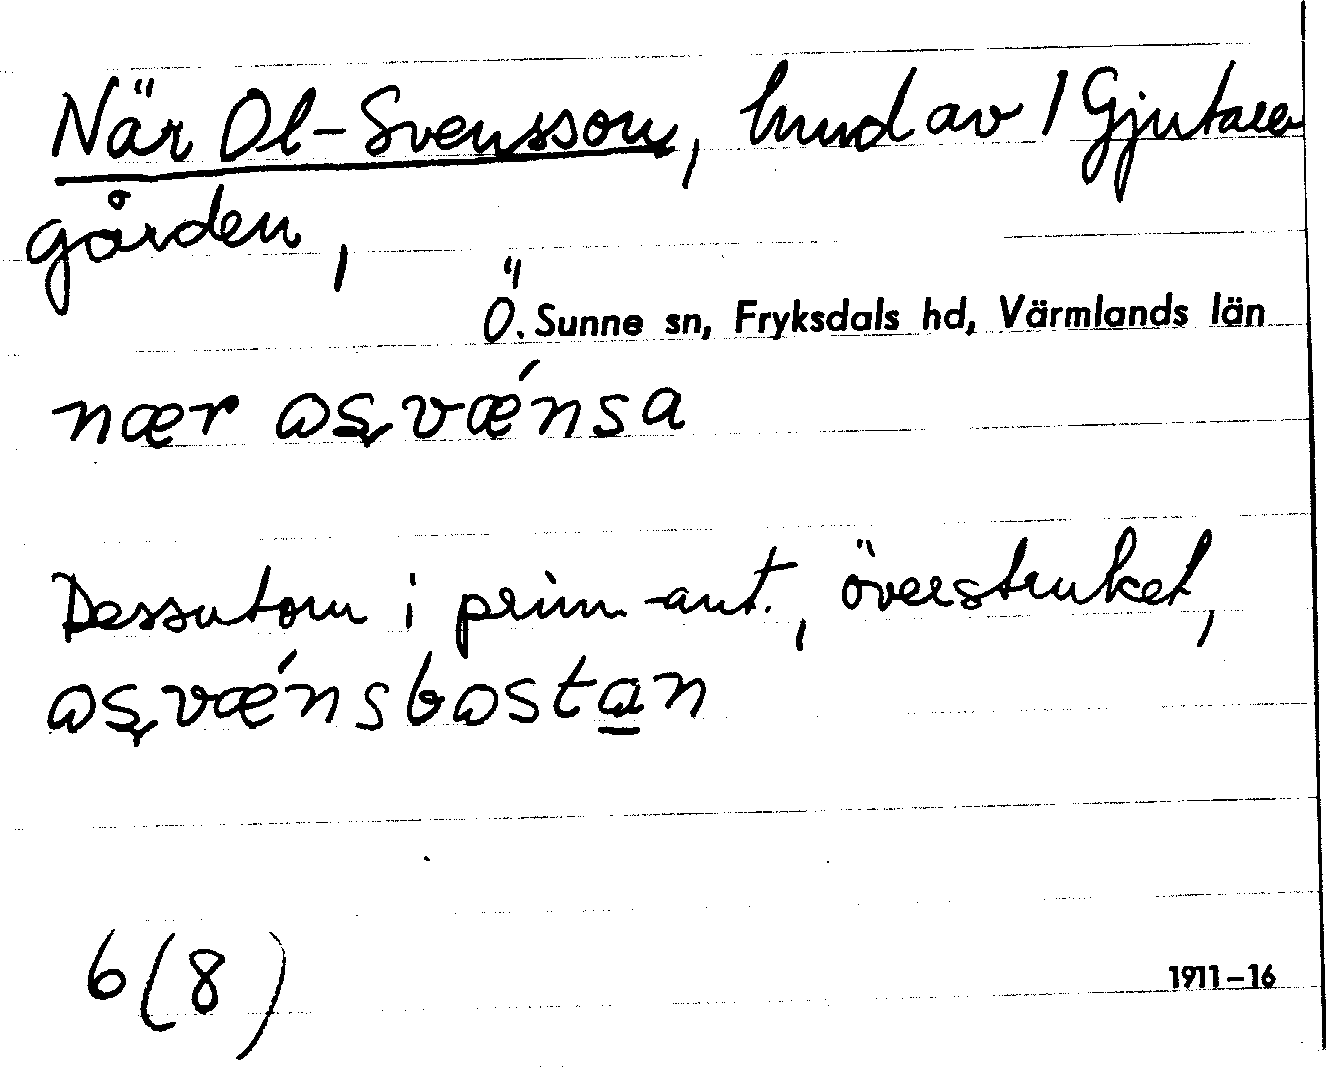 När Ol-Svensson, hmd av 1 Gjutare
gården,
Ö. Sunne sn, Fryksdals hd, Värmlands län
nær ɷʂvǽnsa
Dessutom i prim.-ant., överstruket,
ɷʂvǽnsbɷstan
6(8)
1911-16